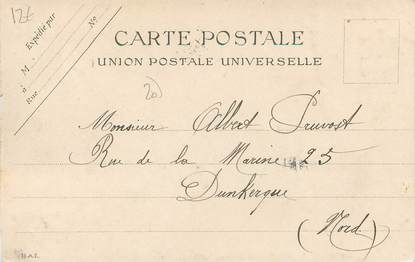 12€
Expédié par
M
à
Rue No
CARTE POSTALE
UNION POSTALE UNIVERSELLE
20
Monsieur Albert Pruvost
Rue de la Marine 25
Dunkerque
(Nord)